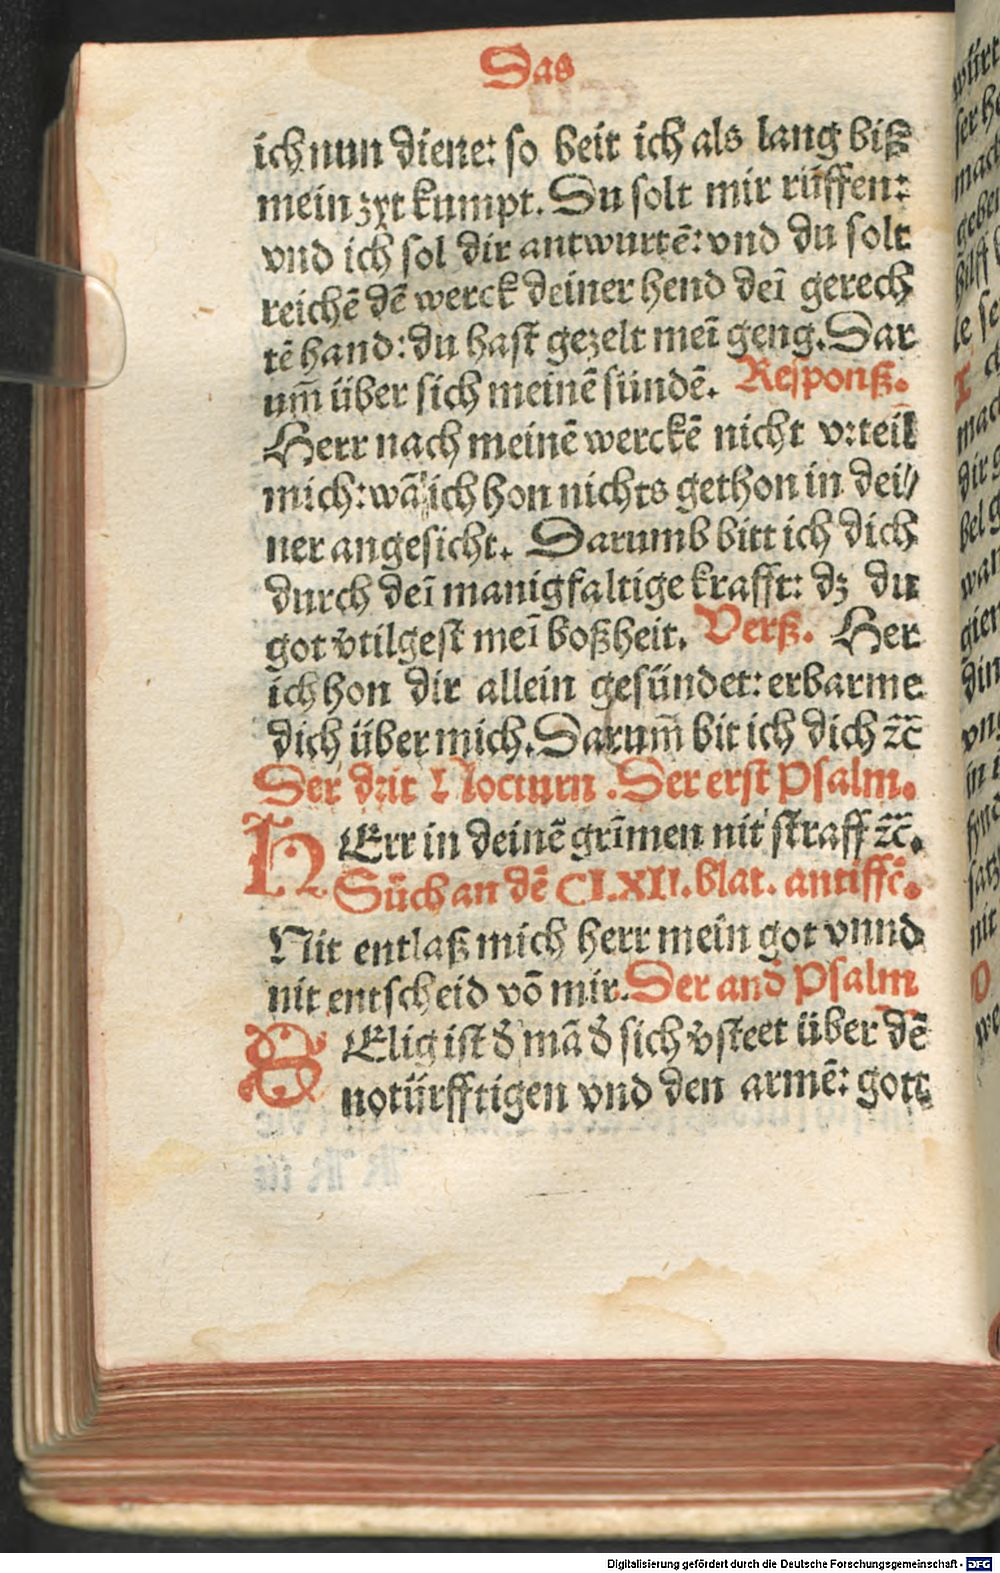 Das
ich nun diene: so beit ich als lang biß
mein zyt kumpt. Du solt mir rüffen:
vnd ich sol dir antwurtē: vnd du solt
reichē dē werck deiner hend deī gerech
tē hand: du hast gezelt meī geng. Dar
um̄ über sich meinē sündē. Responß.
Herr nach meinē werckē nicht vrteil
mich: wā ich hon nichts gethon in dei⸗
ner angesicht. Darumb bitt ich dich
durch deī manigfaltige krafft: dz du
got v̄tilgest meī boßheit. Verß. Her
ich hon dir allein gesündet: erbarme
dich über mich. Darum̄ bit ich dich ꝛc̄
Der drit Nocturn. Der erst Psalm.
HErr in deinē grīmen nit straff ꝛc̄.
Sůch an dē CLXII. blat. antiffē.
Nit entlaß mich herr mein got vnnd
nit entscheid vō mir. Der and̄ Psalm
SElig ist d̄ mā d̄ sich v̄steet über dē
notürfftigen vnd den armē: gott
Digitalisierung gefördert durch die Deutsche Forschungsgemeinschaft - DFG